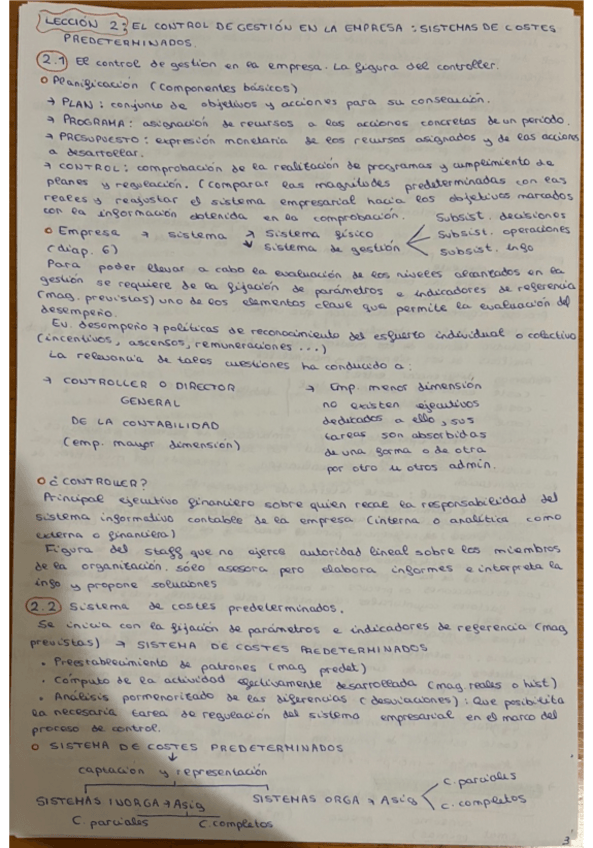 LECCIÓN 2: EL CONTROL DE GESTIÓN EN LA EMPRESA: SISTEMAS DE COSTES
PREDETERMINADOS.
2.1 El control de gestion en la empresa. La figura del controller.
Planificación (componentes básicos)
→ PLAN: conjunto de objetivos y acciones para su consecución.
→ PROGRAMA: asignación de recursos a las acciones concretas de un periodo.
→ PRESUPUESTO: expresión monetaria de los recursos asignados y de las acciones
a desarrollar.
→ CONTROL: comprobación de la realización de programas y cumplimiento de
planes y regulación. (comparar las magnitudes predeterminadas con las
reales y reajustar el sistema empresarial hacia los objetivos marcados
con la información obtenida en la comprobación.
Subsist. decisiones
Empresa → sistema → Sistema físico
Subsist. operaciones
(diap. 6) ↓ Sistema de gestión
Subsist. info
Para poder llevar a cabo la evaluación de los niveles alcanzados en la
gestión se requiere de la fijación de parámetros e indicadores de referencia
(mag. previstas) uno de los elementos clave que permite la evaluación del
desempeño.
Ev. desempeño → políticas de reconocimiento del esfuerzo individual o colectivo
(incentivos, ascensos, remuneraciones...)
La relevancia de tales cuestiones ha conducido a:
→ CONTROLLER O DIRECTOR
GENERAL
DE LA CONTABILIDAD
(emp. mayor dimensión)
→ Emp. menor dimensión
no existen ejecutivos
dedicados a ello, sus
tareas son absorbidas
de una forma o de otra
por otro u otros admin.
¿CONTROLLER?
Principal ejecutivo financiero sobre quien recae la responsabilidad del
sistema informativo contable de la empresa (interna o analítica como
externa o financiera)
Figura del staff que no ejerce autoridad lineal sobre los miembros
de la organización. sólo asesora pero elabora informes e interpreta la
info y propone soluciones
2.2 Sistema de costes predeterminados.
Se inicia con la fijación de parámetros e indicadores de referencia (mag
previstas) → SISTEMA DE COSTES PREDETERMINADOS
• Preestablecimiento de patrones (mag predet)
• Cómputo de la actividad efectivamente desarrollada (mag. reales o hist)
• Análisis pormenorizado de las diferencias (desviaciones): Que posibilita
la necesaria tarea de regulación del sistema empresarial en el marco del
proceso de control.
SISTEMA DE COSTES PREDETERMINADOS
↓
captación y representación
SISTEMAS INORGA → Asig
C. parciales C. completos
SISTEMAS ORGA → Asig
C. parciales
C. completos
3